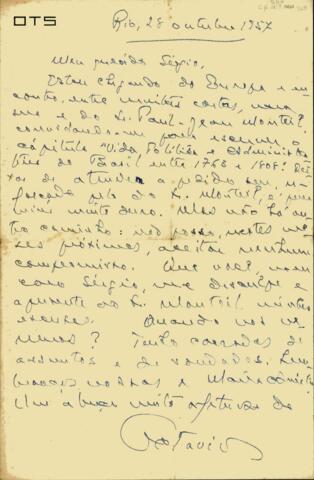 OTS
Rio, 28 outubro 1957
Meu querido Sérgio,
Estou chegando da Europa e en-
contro, entre muitas cartas, uma
sua e do S. Paul-Jean Monteil,
convidando-me para escrever o
capítulo "Vida Política e Administra-
tiva do Brasil entre 1763 e 1808". Dei-
xar de atender a pedido seu, re-
forçado pelo do S. Monteil, é para
mim muito duro. Mas não há ou-
tro caminho: não posso, nestes me-
zes próximos, aceitar nenhum
compromisso. Que você, meu
caro Sérgio, me desculpe e
apresente ao S. Monteil minhas
escusas. Quando nos ve-
remos? Tenho carradas de
assuntos e de saudades. Lem-
branças nossas a Maria Amélia.
Um abraço muito afetuoso do
Octavio